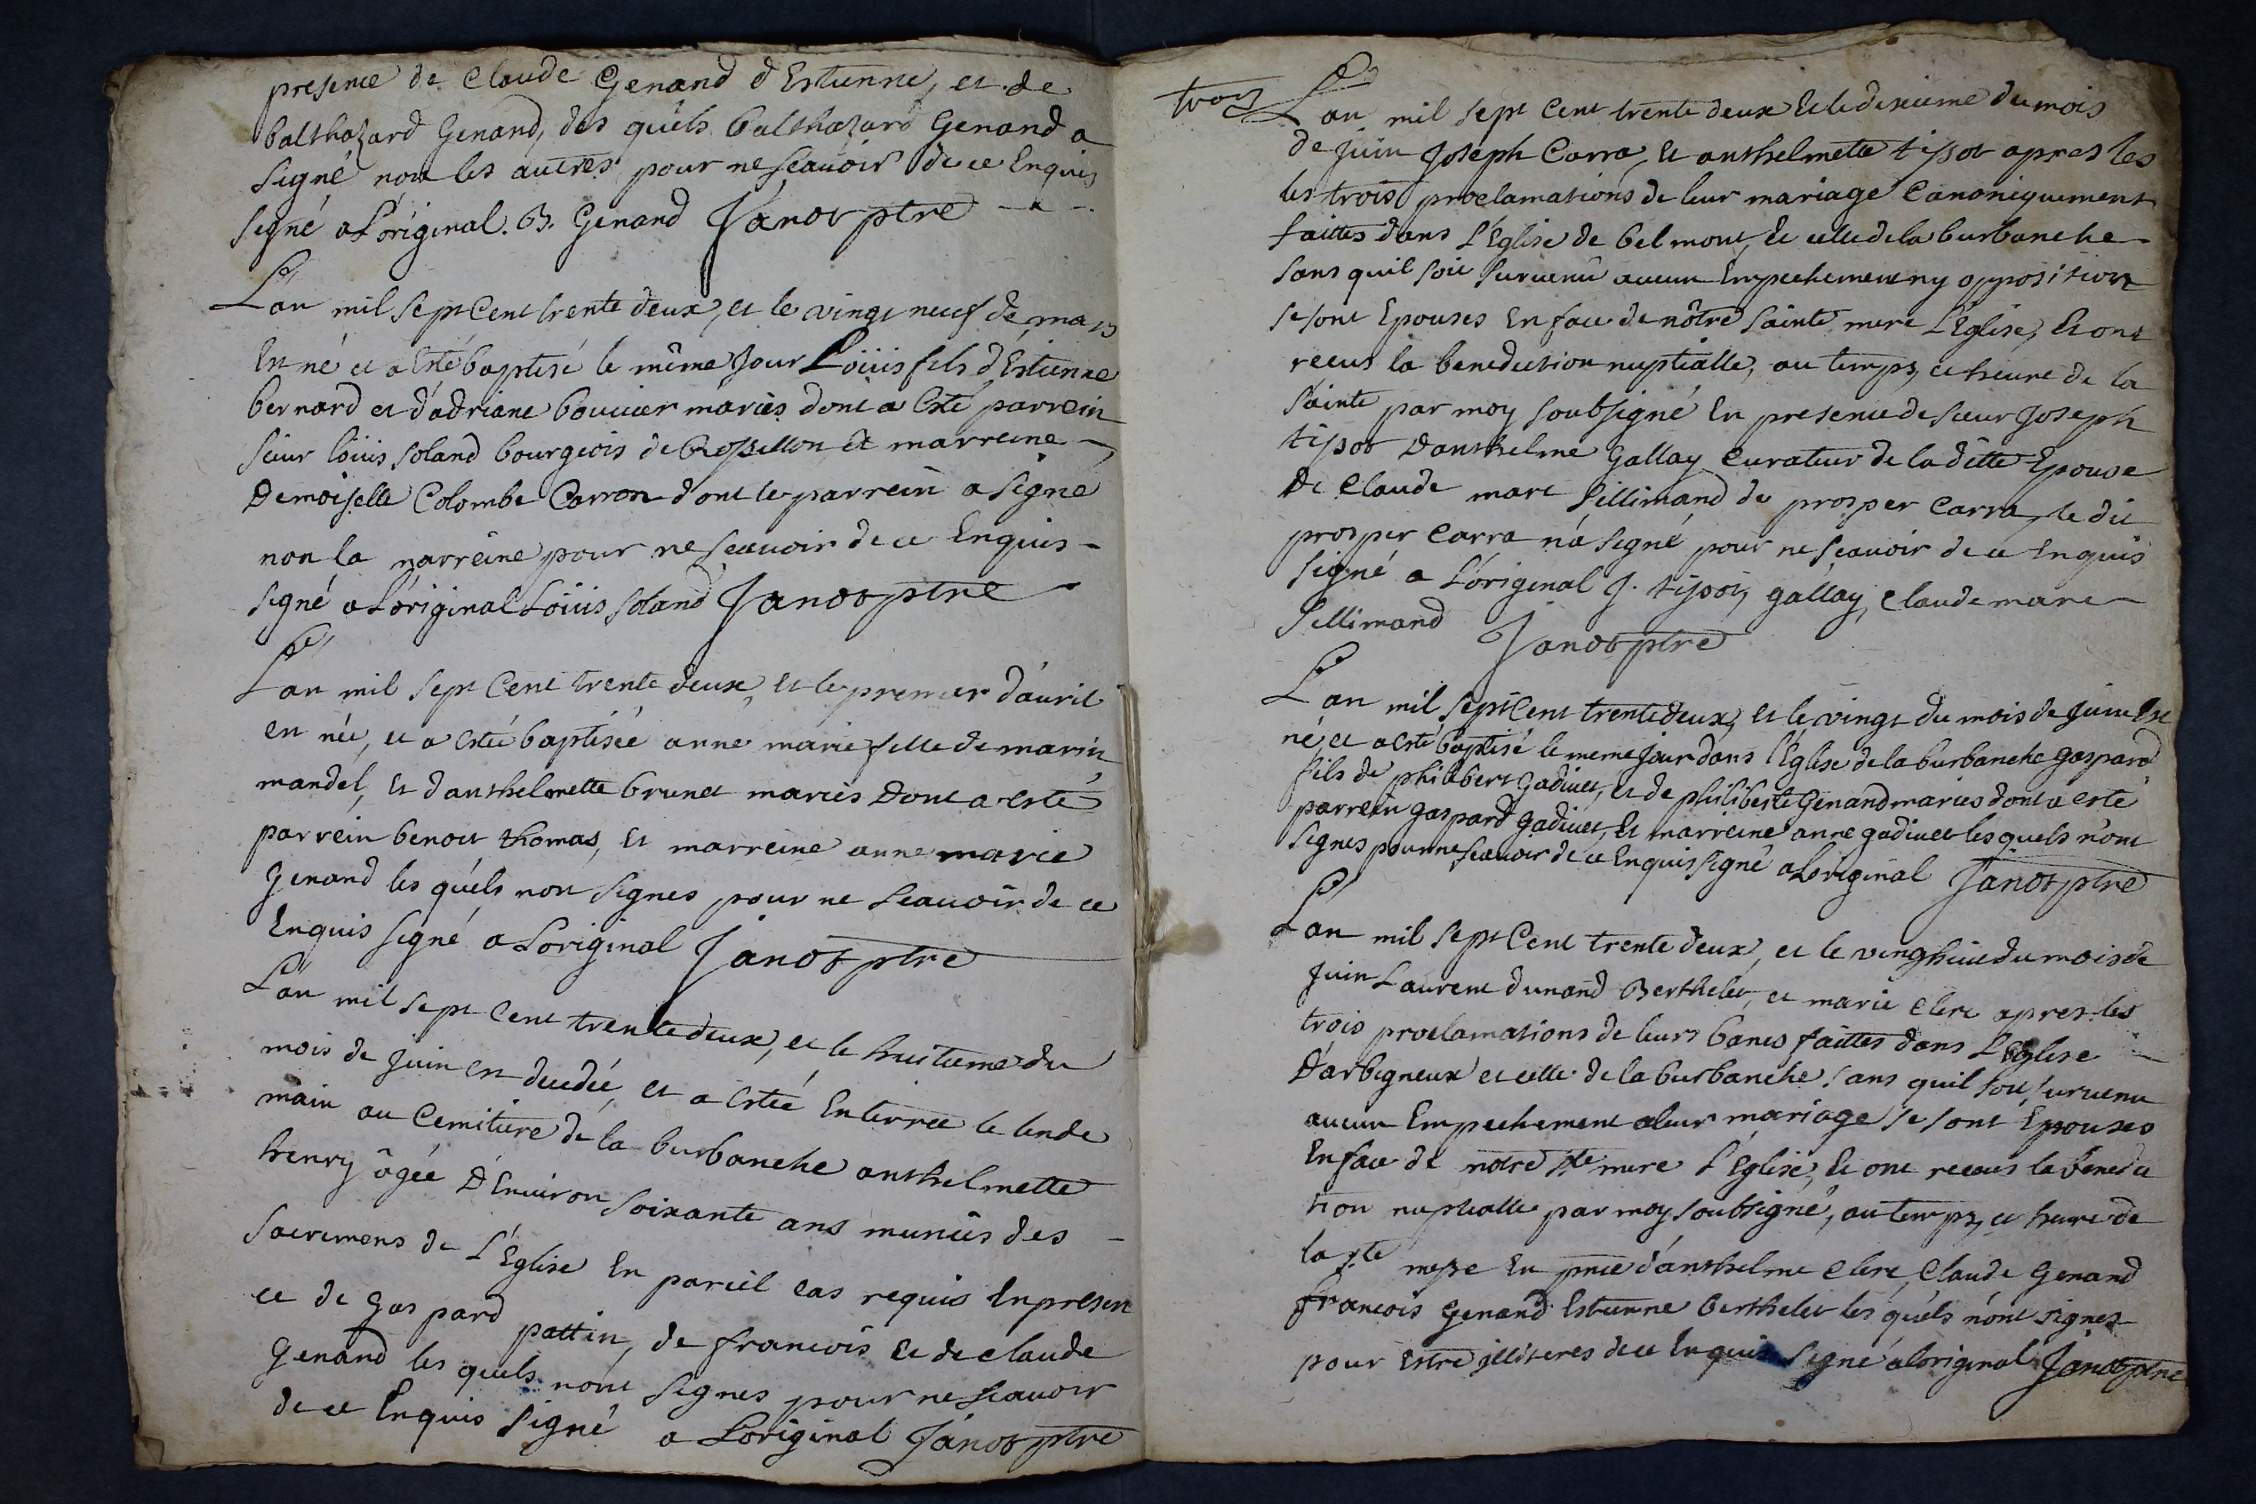 presence de Claude Genand d'Estienne, et de
balthazard Genand, des quels balthazard Genand a
signé non les autres pour ne scavoir de ce Enquis
signé a L'original. B. Genand Janot ptre
L'an mil sept Cent trente deux, et le vingt neuf de mars
En né et a Esté baptisé le même Jour Loüis fils d'Estienne
bernard et d'adriane bouvier mariés dont a Esté parrein
sieur loüis soland bourgeois de Rossillon et marreine
Demoiselle Colombe Carron dont le parrein a signé
non la narreine pour ne scavoir de ce Enquis
signé a L'original Loüis soland Janot ptre
L'an mil sept Cent trente deux, et le premier d'auril
en née, et a estée baptisée anne marie fille de marin
mandel, et d'anthelmette brunet mariés Dont a esté
parrein benoit thomas, et marreine anne marie
Genand les quels non signes pour ne scavoir de ce
Enquis signé a Loriginal Janot ptre
L'an mil sept Cent trente deux, et le huitieme du
mois de juin en decedée, et a Estée Enterrée le lende
main au Cemitiere de la burbanche anthelmette
henry âgée D'Environ soixante ans muniës des
sacremens de L'Eglise En pariël cas requis En presen
ce de gaspard pattin, de francois et de claude
Genand les quels n'ont signes pour ne scavoir
de ce Enquis signé a Loriginal Janot ptre
trois
L'an mil sept Cent trente deux et le dixieme du mois
de juin Joseph Carra, et anthelmette tissot apres les
les trois proclamations de leur mariage Canoniquement
faittes dans L'Eglise de belmont, et celle de la burbanche
sans quil soit survenû aucun Empechement ny opposition
se sont Epousés En face de nôtre sainte mere L'Eglise, Et ont
receus la benediction nuptialle, au temps, et heure de la
sainte par moy soubsigné En presence de sieur Joseph
tissot D'anthelme Gallay Curateur de la ditte Epouse
De Claude marc Sillimand de prosper Carra, le dit
prosper Carra n'a signé pour ne scavoir de ce Enquis
signé a L'original J. tissot, gallay, Claude marc
Sillimand Janot ptre
L'an mil sept Cent trente deux, et le vingt du mois de juin Est
né, et a esté baptisé le meme Jour dans l'Eglise de la burbanche gaspard
fils de philibert Gadivet, et de philiberte Genand mariés dont a esté
parrein gaspard gadivet, Et marreine anne gadivet les quels n'ont
signes pour ne scavoir de ce Enquis signé a Loriginal Janot ptre
L'an mil sept Cent trente deux, et le vingthuit du mois de
Juin Laurent dunand Berthelet, et marie clerc apres les
trois proclamations de leurs bancs faittes dans L'Eglise
D'arbigneux et celle de la burbanche sans quil soit survenu
aucun Empechement a leur mariage se sont Epousés
En face de notre ste mere L'Eglise, Et ont receus la benedic
tion nuptialle par moy soubsigné, au temps, et heure de
la ste messe En pnce d'anthelme clerc, Claude Genand
francois Genand Estienne berthelet les quels n'ont signes
pour Estre illiteres de ce Enquis signé a loriginal Janot ptre